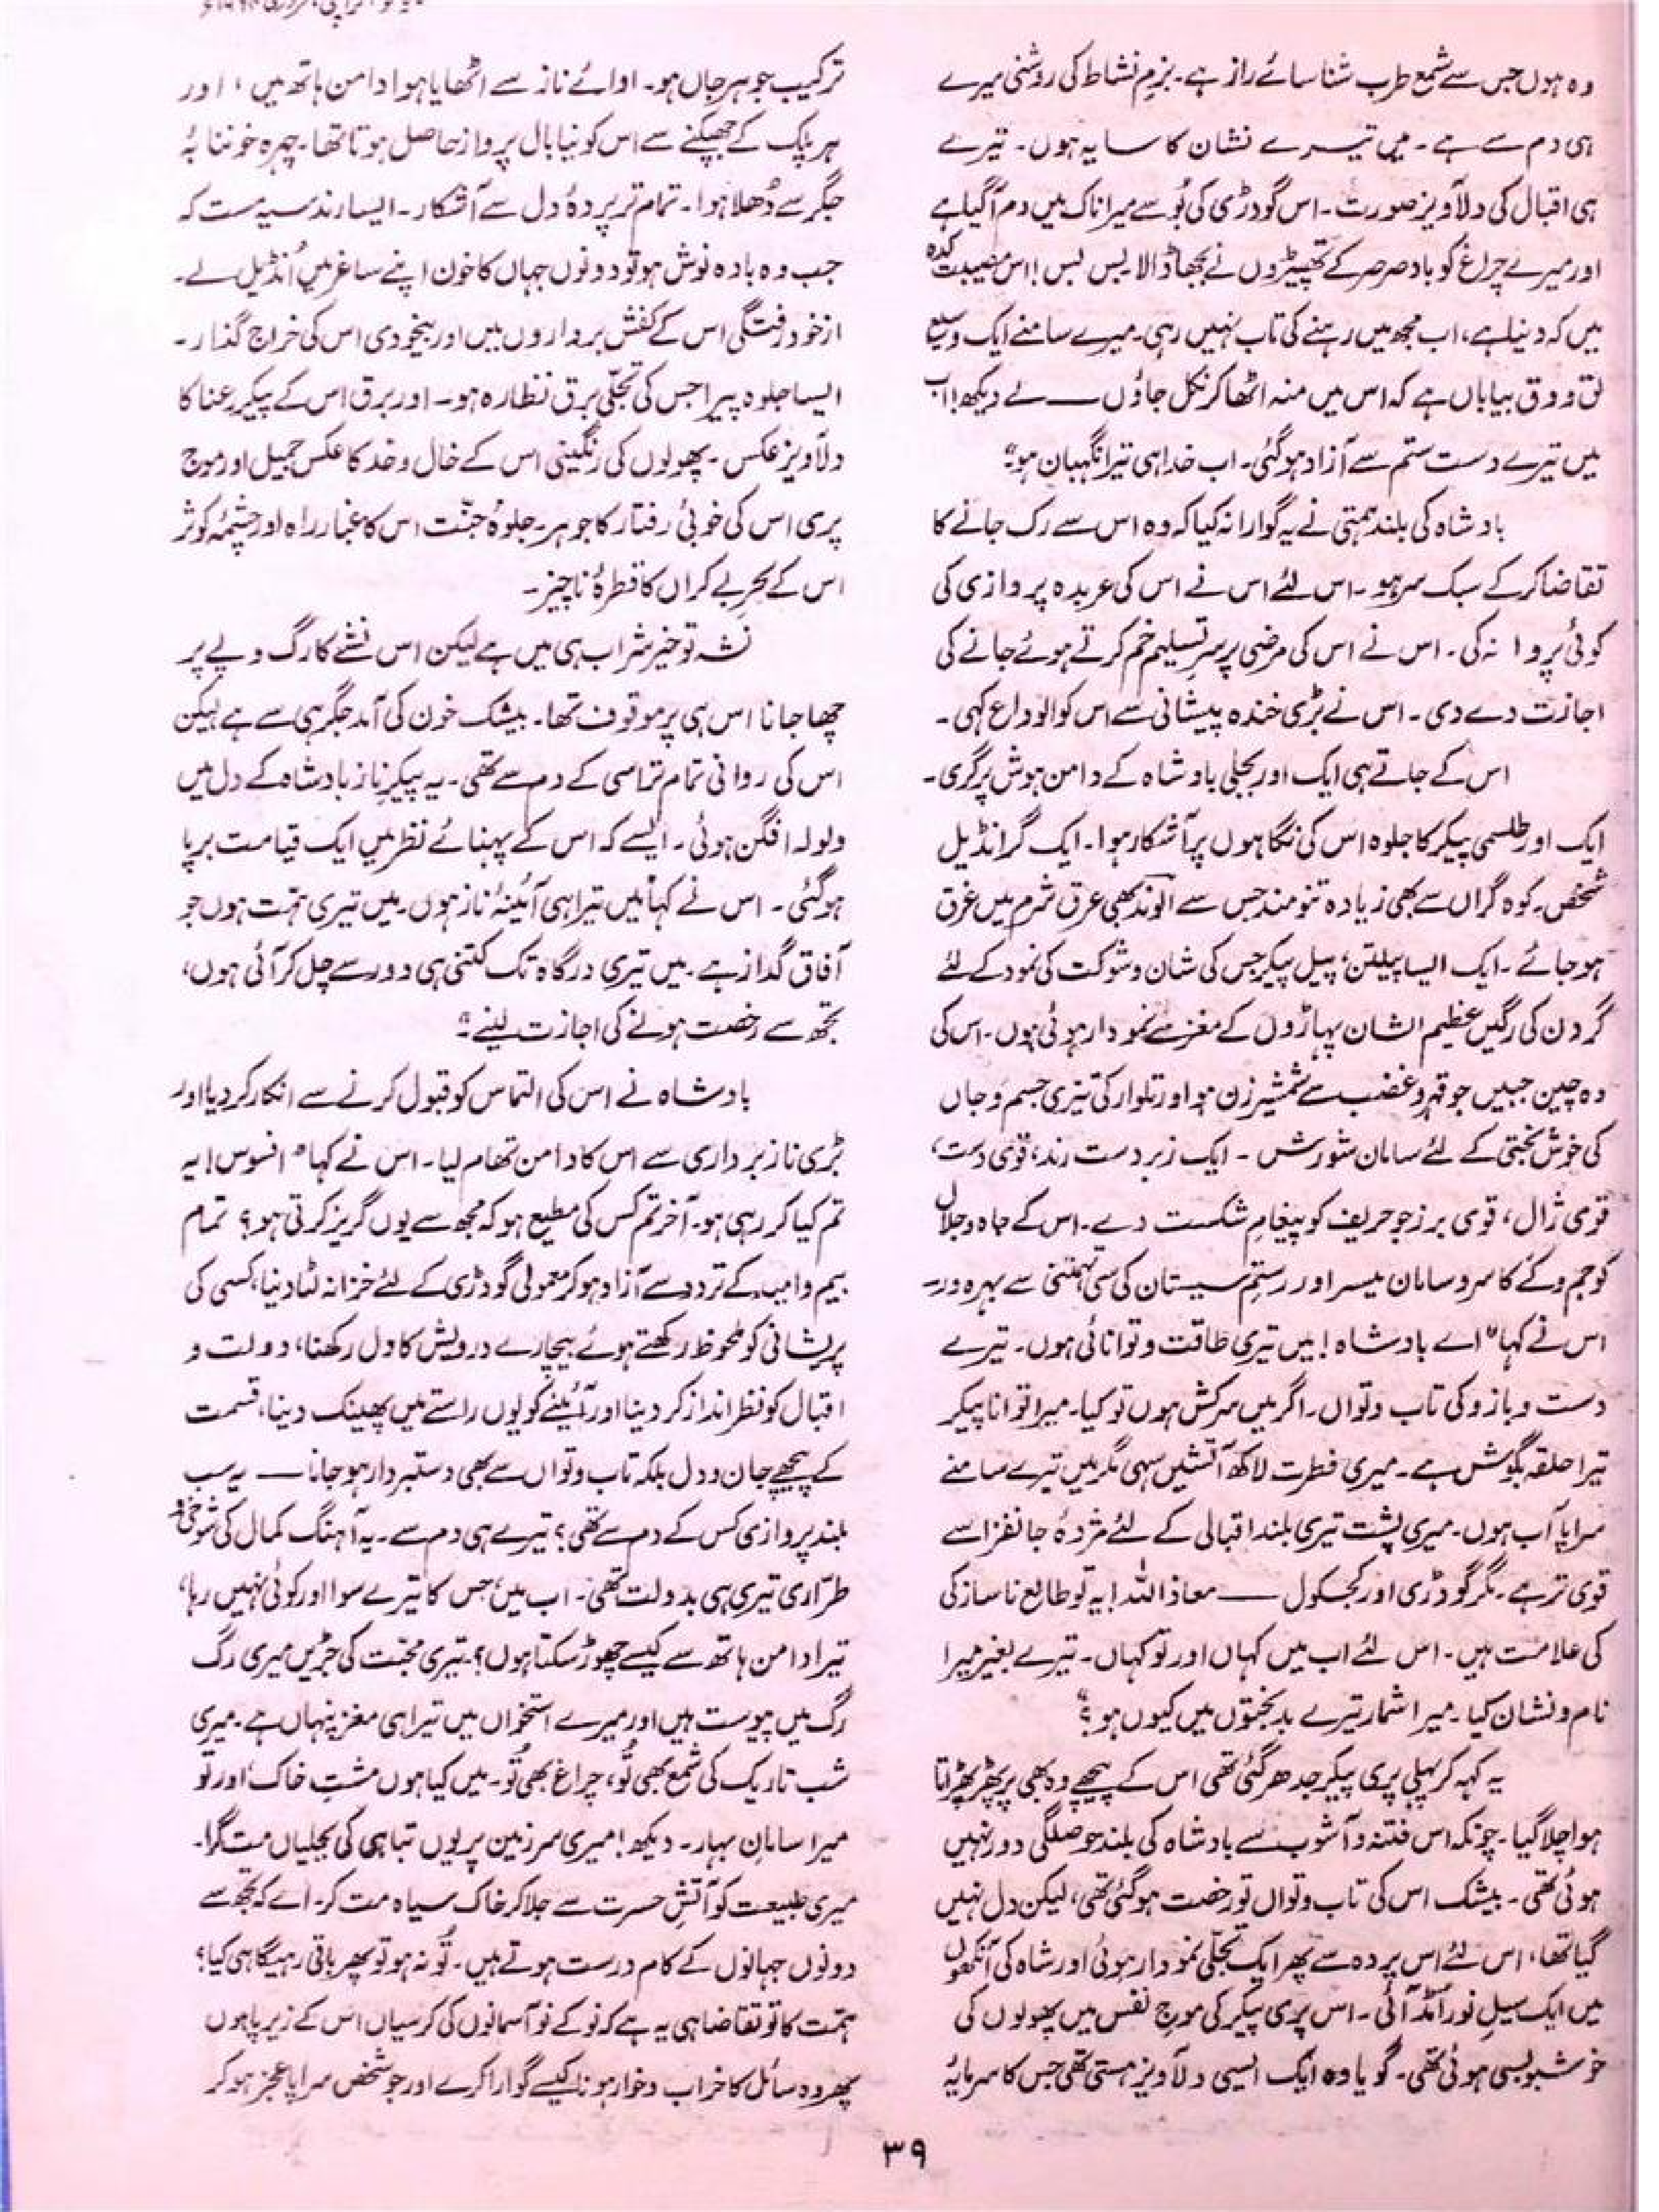 وہ ہوں جس سے شمع طرب شناسائے راز ہے۔ بزمِ نشاط کی روشنی میرے
ہی دم سے ہے۔ میں تیرے نشان کا سایہ ہوں۔ تیرے
ہی اقبال کی دلآویز صورت۔ اس گودڑی کی بُو سے میرا ناک میں دم آگیا ہے
اور میرے چراغ کو بادِ صرصر کے تھپیڑوں نے بجھا ڈالا۔ بس بس! اس مصیبت کدہ
میں کہ دنیا ہے، اب مجھ میں رہنے کی تاب نہیں رہی۔ میرے سامنے ایک وسیع
لق و دق بیاباں ہے کہ اس میں منہ اٹھا کر نکل جاؤں ــــ لے دیکھ! اب
میں تیرے دست ستم سے آزاد ہو گئی۔ اب خدا ہی تیرا نگہبان ہو"۔
بادشاہ کی بلند ہمتی نے یہ گوارا نہ کیا کہ وہ اس سے رک جانے کا
تقاضا کر کے سبک سر ہو۔ اس لئے اس نے اس کی عربدہ پردازی کی
کوئی پروا نہ کی۔ اس نے اس کی مرضی پر سرِ تسلیم خم کرتے ہوئے جانے کی
اجازت دے دی۔ اس نے بڑی خندہ پیشانی سے اس کو الوداع کہی۔
اس کے جاتے ہی ایک اور بجلی بادشاہ کے دامن ہوش پر گری۔
ایک اور طلسمی پیکر کا جلوہ اس کی نگاہوں پر آشکار ہوا۔ ایک گرانڈیل
شخص۔ کوہ گراں سے بھی زیادہ تنومند جس سے الوند بھی عرق شرم میں غرق
ہو جائے۔ ایک ایسا پیلتن، پیل پیکر جس کی شان و شوکت کی نمود کے لئے
گردن کی رگیں عظیم الشان پہاڑوں کے مغز سے نمودار ہوئی ہوں۔ اس کی
وہ چین جبیں جو قہر و غضب سے شمشیر زن ہو اور تلوار کی تیزی جسم و جاں
کی خوش بختی کے لئے سامان شورش۔ ایک زبردست رند، قوی دست،
قوی ژال، قوی برز جو حریف کو پیغامِ شکست دے۔ اس کے جاہ و جلال
کو جم و کے کا سروسامان میسر اور رستمِ سیستان کی سی تہمتنی سے بہرہ ور۔
اس نے کہا "اے بادشاہ! میں تیری طاقت و توانائی ہوں۔ تیرے
دست و بازو کی تاب و تواں۔ اگر میں سرکش ہوں تو کیا۔ میرا توانا پیکر
تیرا حلقہ بگوش ہے۔ میری فطرت لاکھ آتشیں سہی مگر میں تیرے سامنے
سراپا آب ہوں۔ میری پشت تیری بلند اقبالی کے لئے مژدۂ جانفزا سے
قوی تر ہے۔ مگر گودڑی اور کجکول ــــ معاذ اللہ! یہ تو طالع ناساز کی
کی علامت ہیں۔ اس لئے اب میں کہاں اور تو کہاں۔ تیرے بغیر میرا
نام و نشان کیا۔ میرا شمار تیرے بدبختوں میں کیوں ہو؟"
یہ کہہ کر پہلی پری پیکر جدھر گئی تھی اس کے پیچھے وہ بھی پر پھڑپھڑاتا
ہوا چلا گیا۔ چونکہ اس فتنہ و آشوب سے بادشاہ کی بلند حوصلگی دور نہیں
ہوئی تھی۔ بیشک اس کی تاب و تواں تو رخصت ہو گئی تھی، لیکن دل نہیں
گیا تھا، اس لئے اس پردہ سے پھر ایک تجلّی نمودار ہوئی اور شاہ کی آنکھوں
میں ایک سیلِ نور اُمڈ آئی۔ اس پری پیکر کی موجِ نفس میں پھولوں کی
خوشبو بسی ہوئی تھی۔ گویا وہ ایک ایسی دلآویز ہستی تھی جس کا سرمایۂ
ترکیب جوہرِ جاں ہو۔ ادائے ناز سے اٹھایا ہوا دامن ہاتھ میں، اور
ہر پلک کے جھپکنے سے اس کو نیا بال پرواز حاصل ہوتا تھا۔ چہرہ خوننابۂ
جگر سے دُھلا ہوا۔ تمام تر پردۂ دل سے آشکار۔ ایسا رند سیہ مست کہ
جب وہ بادہ نوش ہو تو دونوں جہاں کا خون اپنے ساغر میں اُنڈیل لے۔
ازخود رفتگی اس کے کفش برداروں میں اور بیخودی اس کی خراج گذار۔
ایسا جلوہ پیرا جس کی تجلّی برق نظارہ ہو۔ اور برق اس کے پیکرِ رعنا کا
دلآویز عکس۔ پھولوں کی رنگینی اس کے خال و خد کا عکس جمیل اور موج
پری اس کی خوبئ رفتار کا جوہر۔ جلوۂ جنّت اس کا غبار راہ اور چشمۂ کوثر
اس کے بحرِ بے کراں کا قطرۂ ناچیز۔
نشہ تو خیر شراب ہی میں ہے لیکن اس نشے کا رگ و پے پر
چھا جانا اس ہی پر موقوف تھا۔ بیشک خون کی آمد جگر ہی سے ہے لیکن
اس کی روانی تمام تر اسی کے دم سے تھی۔ یہ پیکرِ ناز بادشاہ کے دل میں
ولولہ افگن ہوئی۔ ایسے کہ اس کے پہنائے نظر میں ایک قیامت برپا
ہو گئی۔ اس نے کہا "میں تیرا ہی آئینۂ ناز ہوں۔ میں تیری ہمت ہوں جو
آفاق گداز ہے۔ میں تیری درگاہ تک کتنی ہی دور سے چل کر آئی ہوں،
تجھ سے رخصت ہونے کی اجازت لینے"۔
بادشاہ نے اس کی التماس کو قبول کرنے سے انکار کر دیا اور
بڑی ناز برداری سے اس کا دامن تھام لیا۔ اس نے کہا "افسوس! یہ
تم کیا کر رہی ہو۔ آخر تم کس کی مطیع ہو کہ مجھ سے یوں گریز کرتی ہو؟ تمام
بیم و امید کے تردد سے آزاد ہو کر معمولی گودڑی کے لئے خزانہ لٹا دینا، کسی کی
پریشانی کو ملحوظ رکھتے ہوئے بیچارے درویش کا دل رکھنا، دولت و
اقبال کو نظر انداز کر دینا اور آئینے کو یوں راستے میں پھینک دینا، قسمت
کے پیچھے جان و دل بلکہ تاب و تواں سے بھی دستبردار ہو جانا ــــ یہ سب
بلند پروازی کس کے دم سے تھی؟ تیرے ہی دم سے۔ یہ آہنگ کمال کی شوخی و
طرّاری تیری ہی بدولت تھی۔ اب میں، جس کا تیرے سوا اور کوئی نہیں رہا،
تیرا دامن ہاتھ سے کیسے چھوڑ سکتا ہوں؟ تیری محبت کی جڑیں میری رگ
رگ میں پیوست ہیں اور میرے استخواں میں تیرا ہی مغز پنہاں ہے۔ میری
شب تاریک کی شمع بھی تُو، چراغ بھی تُو۔ میں کیا ہوں مشتِ خاک، اور تو
میرا سامانِ بہار۔ دیکھ! میری سرزمین پر یوں تباہی کی بجلیاں مت گرا۔
میری طبیعت کو آتشِ حسرت سے جلا کر خاک سیاہ مت کر۔ اے کہ تجھ سے
دونوں جہانوں کے کام درست ہوتے ہیں۔ تُو نہ ہو تو پھر باقی رہیگا ہی کیا؟
ہمّت کا تو تقاضا ہی یہ ہے کہ نو کے نو آسمانوں کی کرسیاں اس کے زیر پا ہوں
پھر وہ سائل کا خراب و خوار ہونا کیسے گوارا کرے اور جو شخص سراپا عجز ہو کر
۳۹